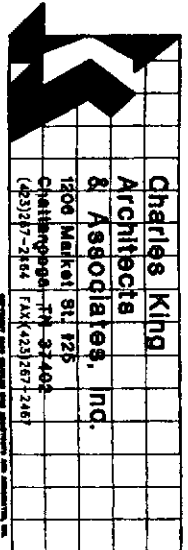 Charles King
Architects
& Associates, Inc.
1206 Market St. #25
Chattanooga, TN 37402
(423)267-2464 FAX(423)267-2467